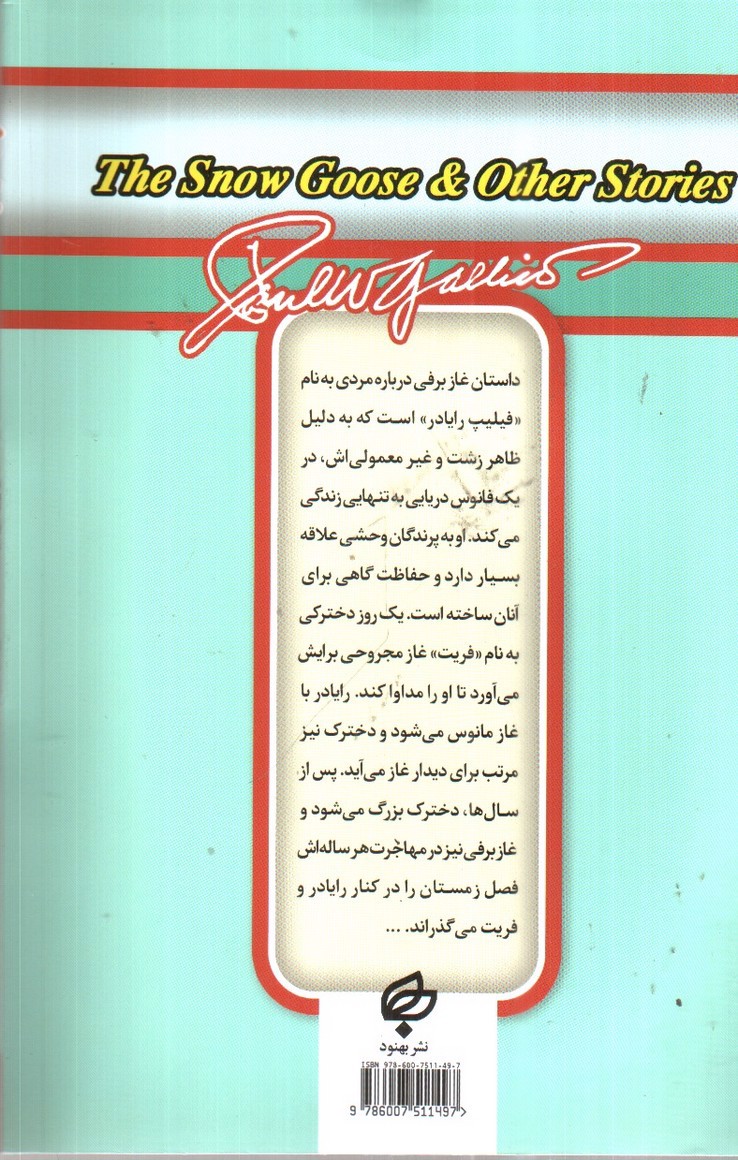 The Snow Goose & Other Stories
Paul W Gallico
داستان غاز برفی درباره مردی به نام
«فیلیپ رایادر» است که به دلیل
ظاهر زشت و غیر معمولی‌اش، در
یک فانوس دریایی به تنهایی زندگی
می‌کند. او به پرندگان وحشی علاقه
بسیار دارد و حفاظت گاهی برای
آنان ساخته است. یک روز دخترکی
به نام «فریت» غاز مجروحی برایش
می‌آورد تا او را مداوا کند. رایادر با
غاز مانوس می‌شود و دخترک نیز
مرتب برای دیدار غاز می‌آید. پس از
سال‌ها، دخترک بزرگ می‌شود و
غاز برفی نیز در مهاجرت هر ساله‌اش
فصل زمستان را در کنار رایادر و
فریت می‌گذراند. ...
نشر بهنود
ISBN 978-600-7511-49-7
9 786007 511497>